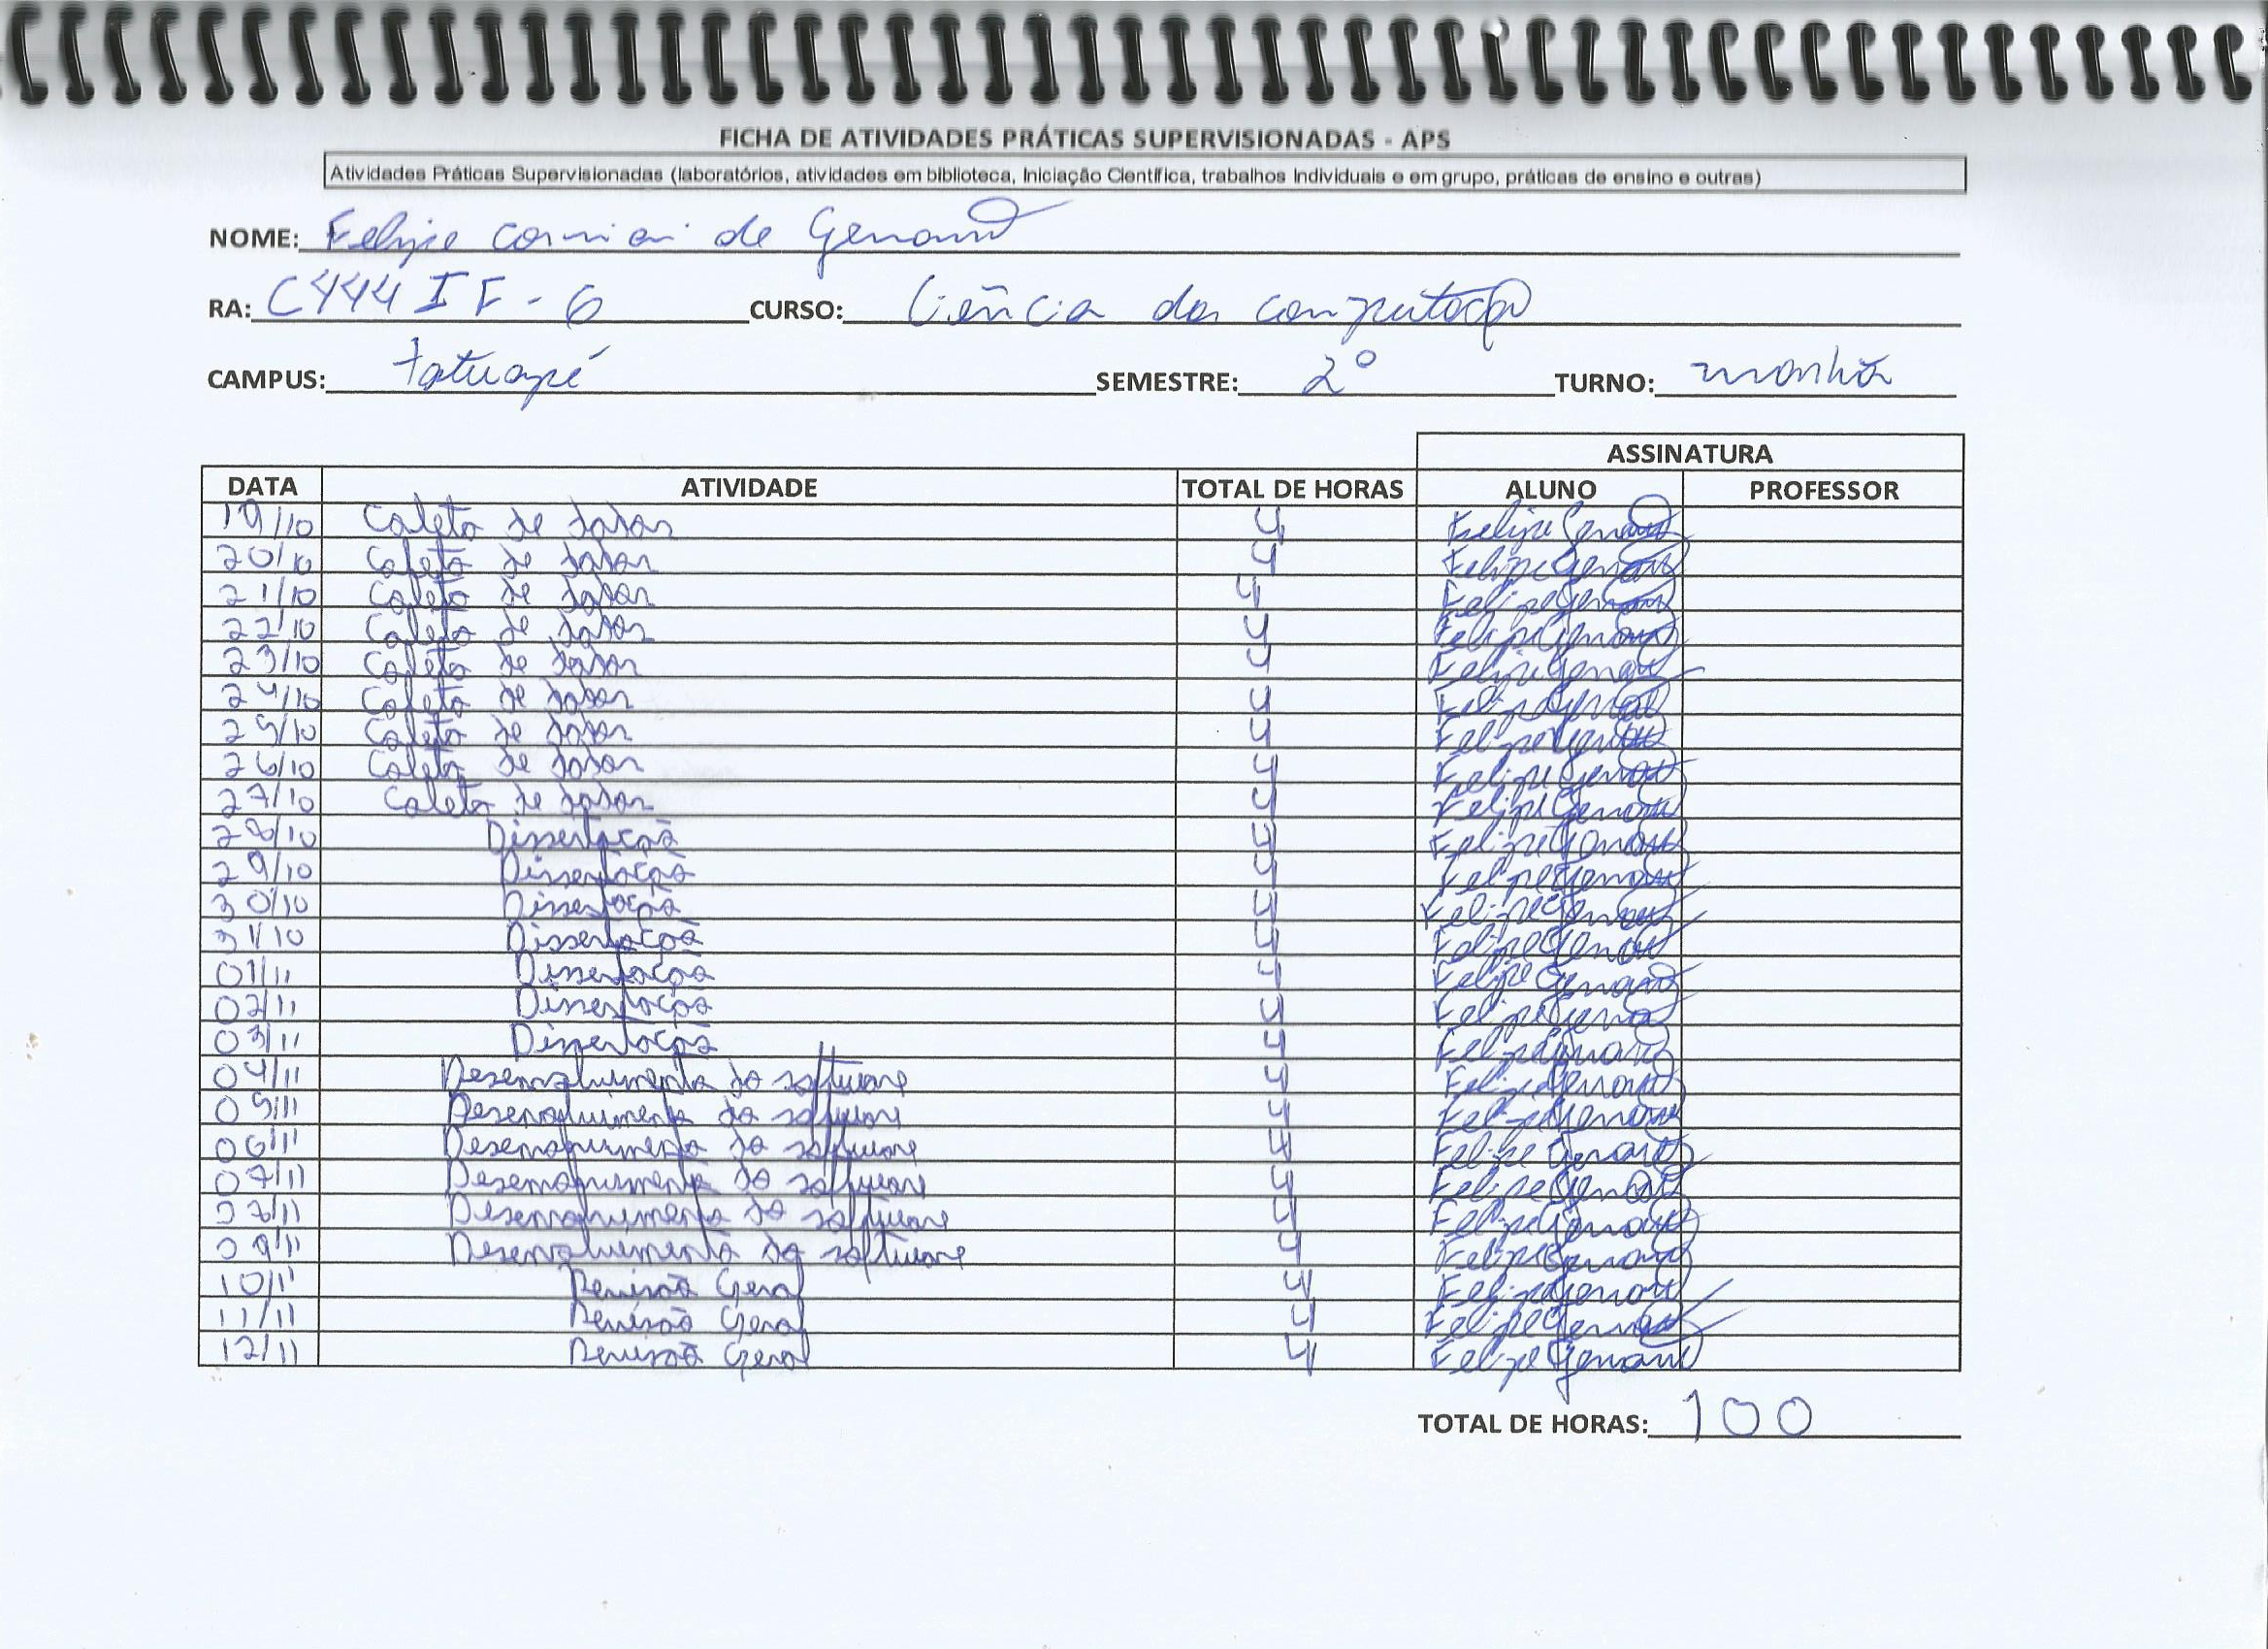 FICHA DE ATIVIDADES PRÁTICAS SUPERVISIONADAS - APS
Atividades Práticas Supervisionadas (laboratórios, atividades em biblioteca, Iniciação Científica, trabalhos Individuais e em grupo, práticas de ensino e outras)
NOME: Felipe de
RA: C444IF-6 CURSO: Ciência da computação
CAMPUS: tatuapé SEMESTRE: 2º TURNO: manhã
ASSINATURA
DATA ATIVIDADE TOTAL DE HORAS ALUNO PROFESSOR
19/10 Coleta de dados 4 Felipe
20/10 Coleta de dados 4 Felipe
21/10 Coleta de dados 4 Felipe
22/10 Coleta de dados 4 Felipe
23/10 Coleta de dados 4 Felipe
24/10 Coleta de dados 4 Felipe
25/10 Coleta de dados 4 Felipe
26/10 Coleta de dados 4 Felipe
27/10 Coleta de dados 4 Felipe
28/10 Dissertação 4 Felipe
29/10 Dissertação 4 Felipe
30/10 Dissertação 4 Felipe
31/10 Dissertação 4 Felipe
01/11 Dissertação 4 Felipe
02/11 Dissertação 4 Felipe
03/11 Dissertação 4 Felipe
04/11 Desenvolvimento do software 4 Felipe
05/11 Desenvolvimento do software 4 Felipe
06/11 Desenvolvimento do software 4 Felipe
07/11 Desenvolvimento do software 4 Felipe
08/11 Desenvolvimento do software 4 Felipe
09/11 Desenvolvimento do software 4 Felipe
10/11 Revisão Geral 4 Felipe
11/11 Revisão Geral 4 Felipe
12/11 Revisão Geral 4 Felipe
TOTAL DE HORAS: 100